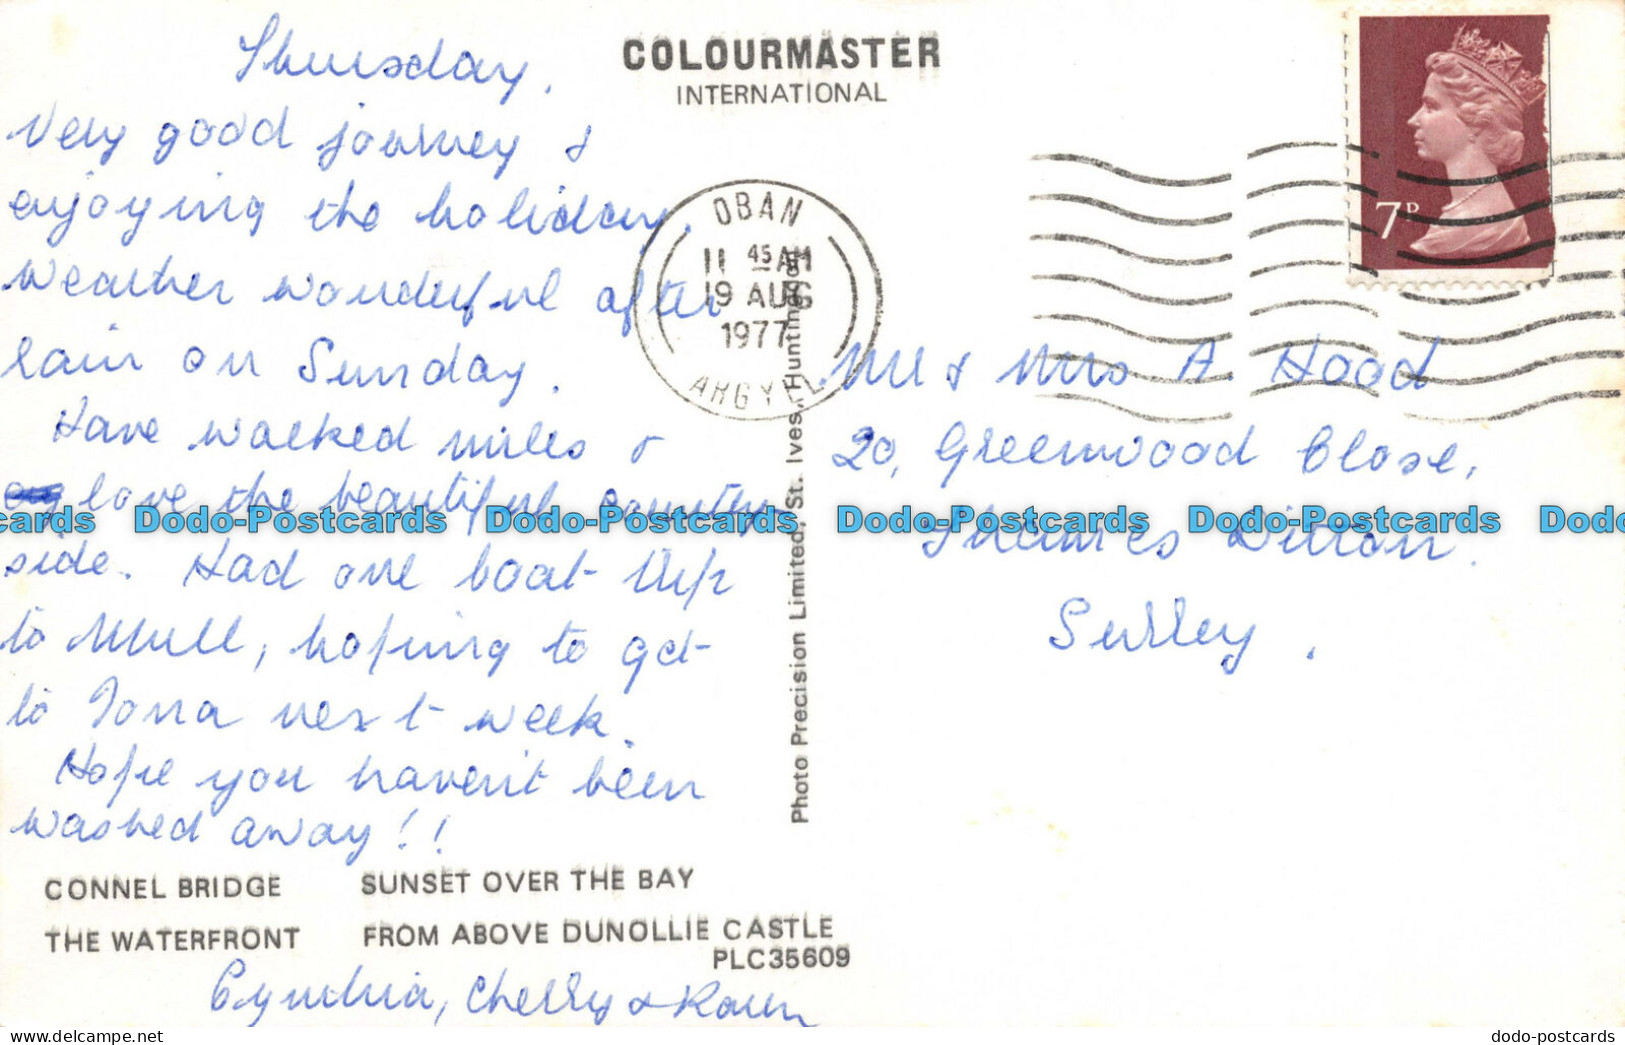 Thursday.
Very good journey &
enjoying the holiday.
Weather wonderful after
rain on Sunday.
Have walked miles &
love the beautiful country-
side. Had one boat trip
to Mull, hoping to get
to Iona next week.
Hope you haven't been
washed away!!
Cynthia, Cherry & Karen
CONNEL BRIDGE
SUNSET OVER THE BAY
THE WATERFRONT
FROM ABOVE DUNOLLIE CASTLE
PLC35609
COLOURMASTER
INTERNATIONAL
Photo Precision Limited, St. Ives, Huntingdon
OBAN
11 45 AM
19 AUG
1977
ARGYLL
7P
Mr & Mrs A. Hood
20, Greenwood Close,
Thames Ditton.
Surrey.
cards Dodo-Postcards Dodo-Postcards Dodo-Postcards Dodo-Postcards Dodo
www.delcampe.net
dodo-postcards